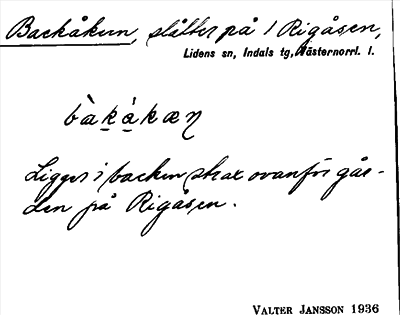 Backåkern, slåtter på 1 Rigåsen,
Lidens sn, Indals tg, Västernorrl. l.
bàk̠à̠kæn
Ligger i backen strax ovanför går-
den på Rigåsen.
VALTER JANSSON 1936